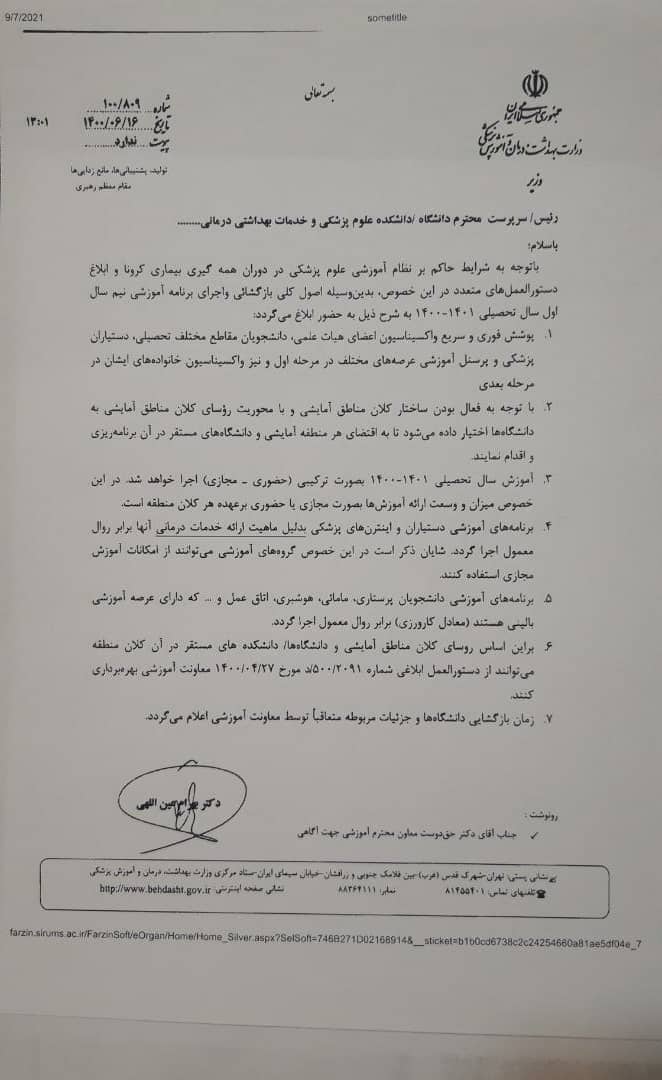 9/7/2021
sometitle
بسمه تعالی
جمهوری اسلامی ایران
وزارت بهداشت، درمان و آموزش پزشکی
وزیر
شماره ۱۰۰/۸۰۹
تاریخ ۱۴۰۰/۰۶/۱۶
۱۳:۰۱
پیوست ندارد
تولید، پشتیبانی‌ها، مانع زدایی‌ها
مقام معظم رهبری
رئیس/ سرپرست محترم دانشگاه /دانشکده علوم پزشکی و خدمات بهداشتی درمانی........
باسلام؛
باتوجه به شرایط حاکم بر نظام آموزشی علوم پزشکی در دوران همه گیری بیماری کرونا و ابلاغ
دستورالعمل‌های متعدد در این خصوص، بدین‌وسیله اصول کلی بازگشائی واجرای برنامه آموزشی نیم سال
اول سال تحصیلی ۱۴۰۱-۱۴۰۰ به شرح ذیل به حضور ابلاغ می‌گردد:
۱. پوشش فوری و سریع واکسیناسیون اعضای هیات علمی، دانشجویان مقاطع مختلف تحصیلی، دستیاران
پزشکی و پرسنل آموزشی عرصه‌های مختلف در مرحله اول و نیز واکسیناسیون خانواده‌های ایشان در
مرحله بعدی
۲. با توجه به فعال بودن ساختار کلان مناطق آمایشی و با محوریت رؤسای کلان مناطق آمایشی به
دانشگاه‌ها اختیار داده می‌شود تا به اقتضای هر منطقه آمایشی و دانشگاه‌های مستقر در آن برنامه‌ریزی
و اقدام نمایند.
۳. آموزش سال تحصیلی ۱۴۰۱-۱۴۰۰ بصورت ترکیبی (حضوری ـ مجازی) اجرا خواهد شد. در این
خصوص میزان و وسعت ارائه آموزش‌ها بصورت مجازی یا حضوری برعهده هر کلان منطقه است.
۴. برنامه‌های آموزشی دستیاران و اینترن‌های پزشکی بدلیل ماهیت ارائه خدمات درمانی آنها برابر روال
معمول اجرا گردد. شایان ذکر است در این خصوص گروه‌های آموزشی می‌توانند از امکانات آموزش
مجازی استفاده کنند.
۵. برنامه‌های آموزشی دانشجویان پرستاری، مامائی، هوشبری، اتاق عمل و ... که دارای عرصه آموزشی
بالینی هستند (معادل کارورزی) برابر روال معمول اجرا گردد.
۶. براین اساس روسای کلان مناطق آمایشی و دانشگاه‌ها/ دانشکده های مستقر در آن کلان منطقه
می‌توانند از دستورالعمل ابلاغی شماره ۵۰۰/۲۰۹۱/د مورخ ۱۴۰۰/۰۴/۲۷ معاونت آموزشی بهره‌برداری
کنند.
۷. زمان بازگشایی دانشگاه‌ها و جزئیات مربوطه متعاقباً توسط معاونت آموزشی اعلام می‌گردد.
دکتر بهرام عین اللهی
رونوشت :
✓ جناب آقای دکتر حق‌دوست معاون محترم آموزشی جهت آگاهی
نشانی پستی: تهران-شهرک قدس (غرب)-بین فلامک جنوبی و زرافشان-خیابان سیمای ایران-ستاد مرکزی وزارت بهداشت، درمان و آموزش پزشکی
تلفنهای تماس: ۸۱۴۵۵۴۰۱ نمابر: ۸۸۳۶۴۱۱۱ نشانی صفحه اینترنتی: http://www.behdasht.gov.ir
farzin.sirums.ac.ir/FarzinSoft/eOrgan/Home/Home_Silver.aspx?SelSoft=746B271D02168914&__sticket=b1b0cd6738c2c24254660a81ae5df04e_7